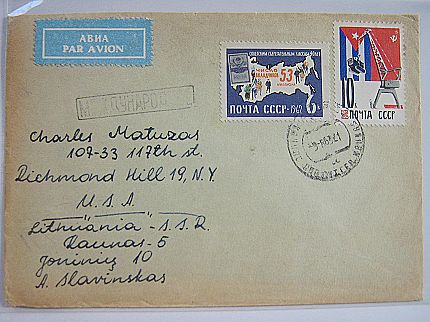 АВИА
PAR AVION
МЕЖДУНАРОД
ЧИСЛО
ВКЛАДЧИКОВ
53
ПОЧТА СССР 1962
6
10
ПОЧТА СССР
Charles Matuzas
109-33 117th st.
Richmond Hill 19, N.Y.
U.S.A.
Lithuania - S.S.R.
Kaunas-5
Joninių 10
A. Slavinskas